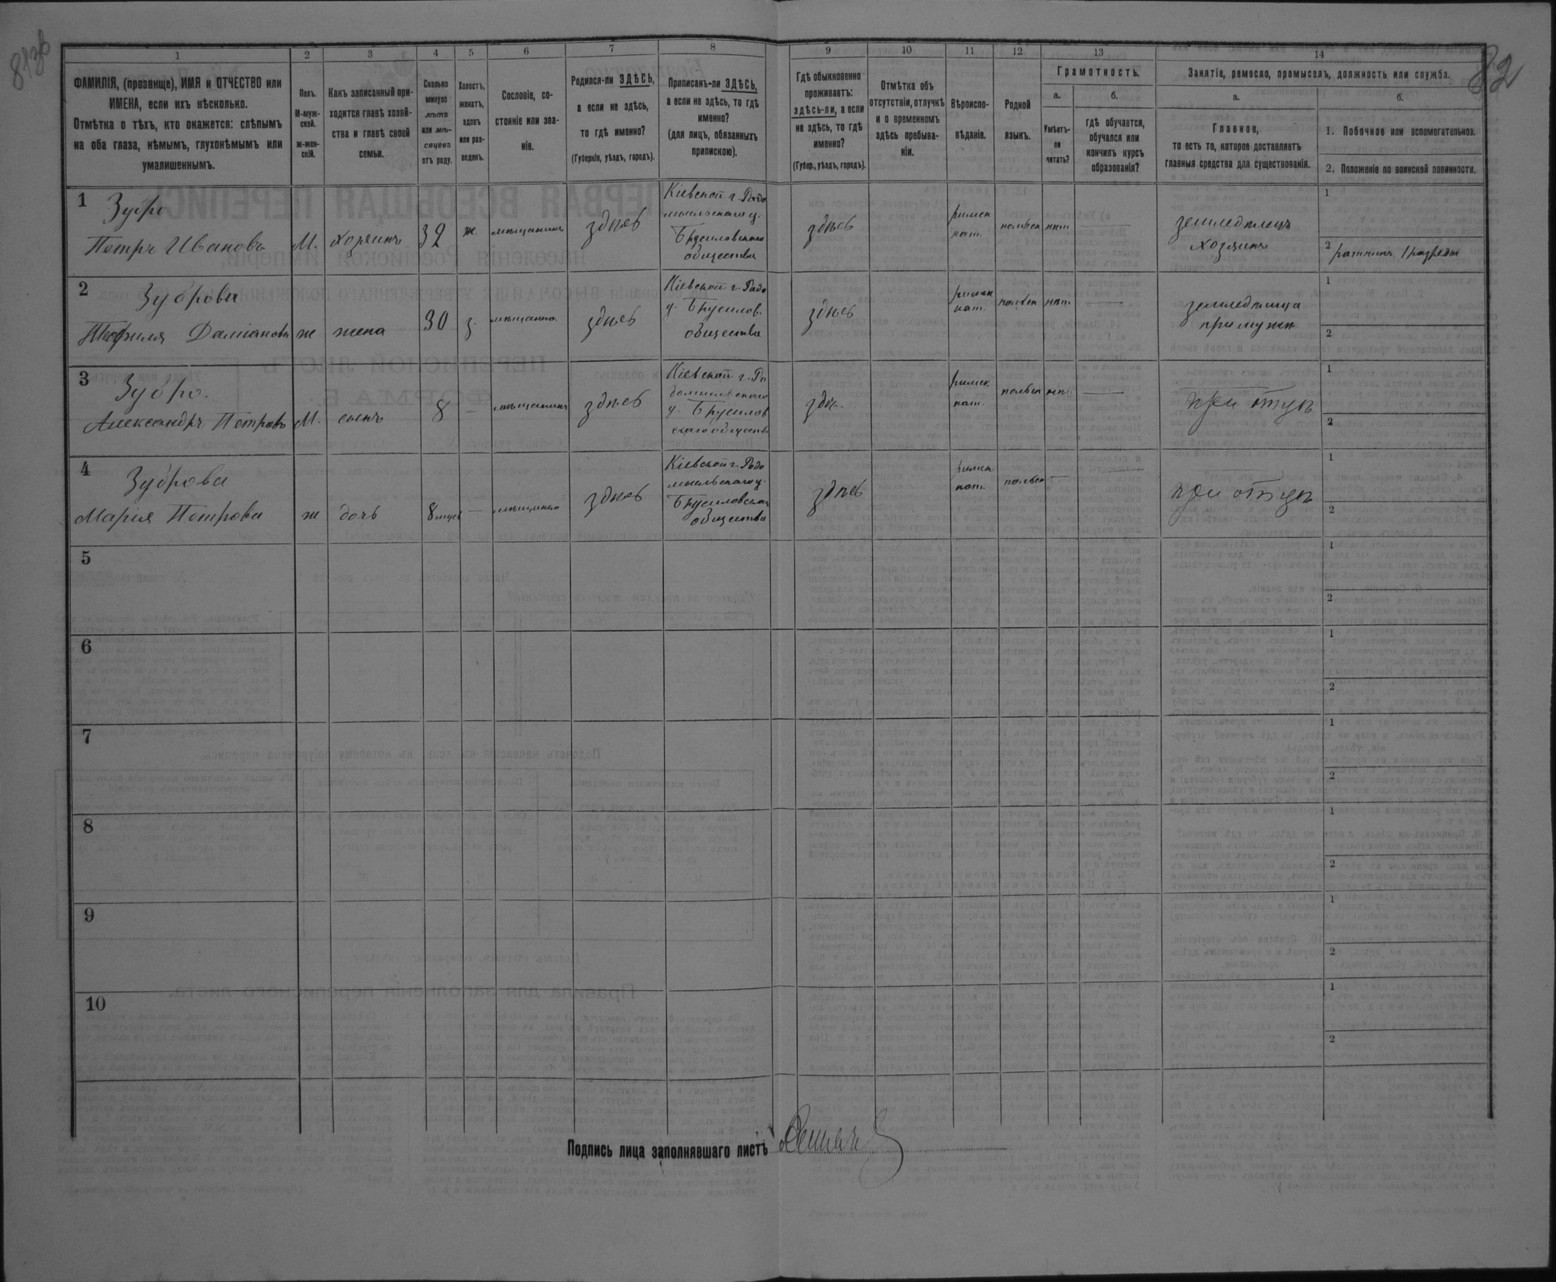 82
1
2
3
4
5
6
7
8
9
10
11
12
13
14
ФАМИЛІЯ, (прозвище), ИМЯ и ОТЧЕСТВО или
ИМЕНА, если ихъ нѣсколько.
Отмѣтка о тѣхъ, кто окажется: слѣпымъ
на оба глаза, нѣмымъ, глухонѣмымъ или
умалишеннымъ.
Полъ.
М-муж-
ской.
ж-жен-
скій.
Какъ записанный при-
ходится главѣ хозяй-
ства и главѣ своей
семьи.
Сколько
минуло
лѣтъ
или мѣ-
сяцевъ
отъ роду.
Холостъ,
женатъ,
вдовъ
или раз-
веденъ.
Сословіе, со-
стояніе или зва-
ніе.
Родился-ли ЗДѢСЬ,
а если не здѣсь,
то гдѣ именно?
(Губернія, уѣздъ, городъ).
Приписанъ-ли ЗДѢСЬ,
а если не здѣсь, то гдѣ
именно?
(для лицъ, обязанныхъ
припискою).
Гдѣ обыкновенно
проживаетъ:
здѣсь-ли, а если
не здѣсь, то гдѣ
именно?
(Губер., уѣздъ, городъ).
Отмѣтка объ
отсутствіи, отлучкѣ
и о временномъ
здѣсь пребыва-
ніи.
Вѣроиспо-
вѣданіе.
Родной
языкъ.
Грамотность.
а.
Умѣетъ-
ли
читать?
б.
гдѣ обучается,
обучался или
кончилъ курсъ
образованія?
Занятіе, ремесло, промыселъ, должность или служба.
а.
Главное,
то есть то, которое доставляетъ
главныя средства для существованія.
б.
1. Побочное или вспомогательное.
2. Положеніе по воинской повинности.
1
Зубро
Петръ Ивановъ
М.
хозяинъ
32
ж.
мѣщанинъ
здѣсь
Кіевской г. Радо
мысльскаго у.
Брусиловскаго
общества
здѣсь
римск
кат.
польск
нѣт
земледѣлецъ
хозяинъ
1
2
ратникъ 1 разряда
2
Зуброва
Теофиля Даміанова
ж
жена
30
з.
мѣщанка
здѣсь
Кіевской г. Радо
у. Брусилов.
общества
здѣсь
римск
кат.
польск
нѣт
земледѣлица
при мужѣ
1
2
3
Зубро.
Александръ Петровъ
М.
сынъ
8
—
мѣщанинъ
здѣсь
Кіевской г. Ра
домысльскаго
у. Брусилов
скаго общества
здѣс.
римск
кат.
польск
нѣт
при отцѣ
1
2
4
Зуброва
Марія Петрова
ж
дочь
8 мѣсяц
—
мѣщанка
здѣсь
Кіевской г. Радо
мысльскаго у
Брусиловскаго
общества
здѣсь
римск
кат.
польск
—
при отцѣ
1
2
5
1
2
6
1
2
7
1
2
8
1
2
9
1
2
10
1
2
Подпись лица заполнявшаго листъ